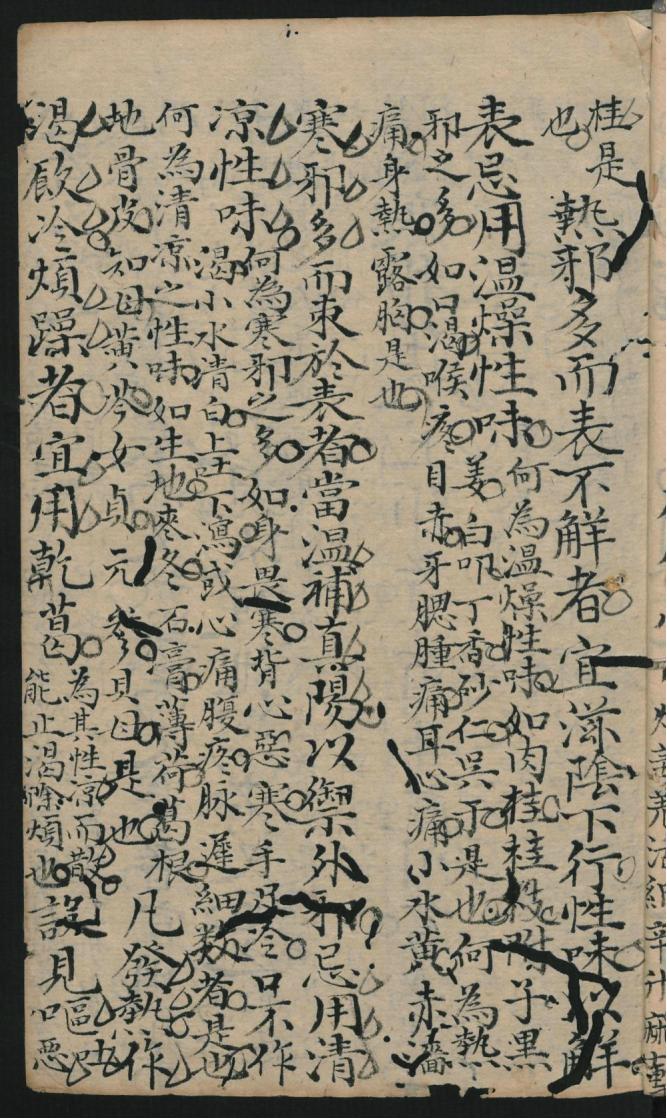 桂是
也
熱邪多而表不解者宜滋陰下行性味以解
表忌用温燥性味何為温燥性味如肉桂桂枝附子黑
姜白叩丁香砂仁吳于是也何為熱
邪之多如口渴喉疼目赤牙腮腫痛耳心痛小水黃赤濇
痛身熱露胸是也
寒邪多而束於表者當温補真陽以禦外邪忌用清
凉性味何為寒邪之多如身畏寒背心惡寒手足冷口不作
渴小水清白上吐下瀉或心痛腹疼脉遲細数者是也
何為清凉之性味如生地麥冬石膏薄荷葛根
地骨皮知母黃芩女貞元參貝母是也凡發熱作
渴飲冷煩躁者宜用乾葛為其性凉而散
能止渴除煩也設見嘔吐惡